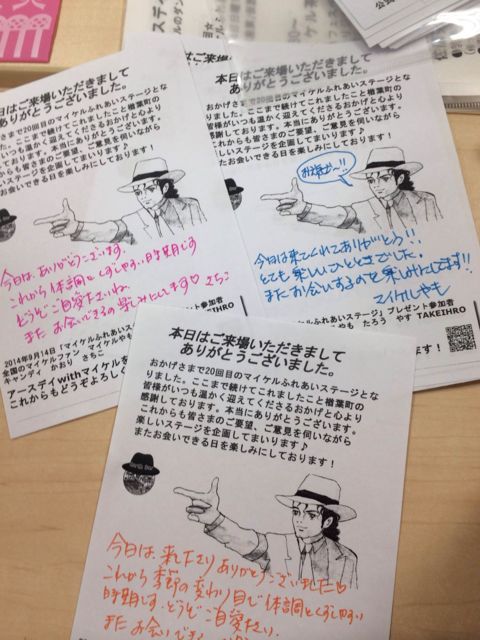 本日はご来場いただきまして
ありがとうございます。
おかげさまで20回目のマイケルふれあいステージとな
りました。ここまで続けてこれましたこと楢葉町の
皆様がいつも温かく迎えてくださるおかげと心より
感謝しております。本当にありがとうございます。
これからも皆さまのご要望、ご意見を伺いながら
楽しいステージを企画してまいります♪
またお会いできる日を楽しみにしております!
今日はありがとうございます。
これから体調とくずしやすい時期です
どうぞご自愛くださいね
また お会いできるの楽しみにしてます♡ さちこ
2014年9月14日「マイケルふれあいステー
全国のマイケルファン マイケルやも
キャンディ かおり さちこ
アースデイwithマイケルを
これからもどうぞよろしく
本日はご来場いただきまして
ありがとうございます。
おかげさまで20回目のマイケルふれあいステージとな
りました。ここまで続けてこれましたこと楢葉町の
皆様がいつも温かく迎えてくださるおかげと心より
感謝しております。本当にありがとうございます。
これからも皆さまのご要望、ご意見を伺いながら
楽しいステージを企画してまいります♪
またお会いできる日を楽しみにしております!
今日は来てくれてありがとう!!
とても楽しいひとときでした。
またお会いするのを楽しみにしてます!!
マイケルやも
ふれあいステージ」プレゼント参加者
やも たろう やす TAKEIHRO
本日はご来場いただきまして
ありがとうございます。
おかげさまで20回目のマイケルふれあいステージとな
りました。ここまで続けてこれましたこと楢葉町の
皆様がいつも温かく迎えてくださるおかげと心より
感謝しております。本当にありがとうございます。
これからも皆さまのご要望、ご意見を伺いながら
楽しいステージを企画してまいります♪
またお会いできる日を楽しみにしております!
今日は、来て下さりありがとうございました♡
これから季節の変わり目で体調とくずしやすい
時期です。どうぞご自愛ください。
また お会いでき